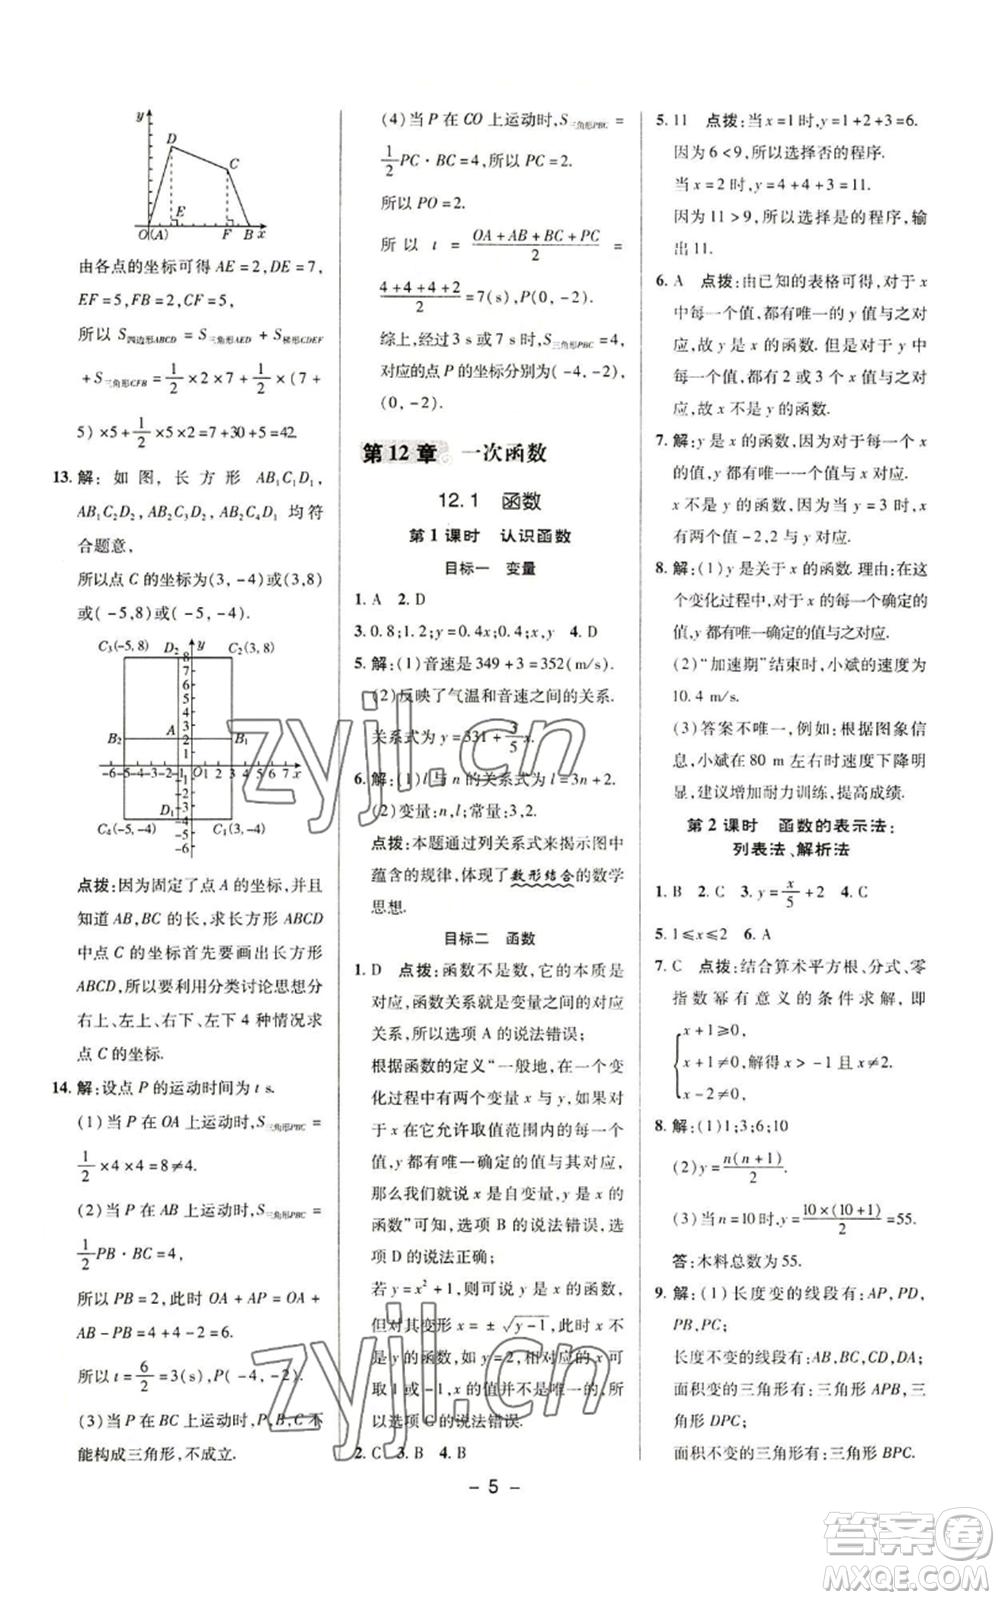 y
D
C
E
O(A)
F
B
x
由各点的坐标可得 AE=2,DE=7,
EF=5,FB=2,CF=5,
所以 S四边形ABCD=S三角形AED+S梯形CDEF
+S三角形CFB=1/2×2×7+1/2×(7+
5)×5+1/2×5×2=7+30+5=42.
13.解:如图,长方形 AB₁C₁D₁,
AB₁C₂D₂,AB₂C₃D₂, 均符
合题意,
所以点 C 的坐标为(3,-4)或(3,8)
或(-5,8)或(-5,-4).
C₃(-5,8) D₂ y C₂(3,8)
8
7
6
5
4
3
A
B₂ 2 B₁
1
-6-5-4-3-2-1 O 1 2 3 4 5 6 7 x
-1
-2
D₁ -3
-4
C₄(-5,-4) -5 C₁(3,-4)
-6
点拨:因为固定了点 A 的坐标,并且
知道 AB,BC 的长,求长方形 ABCD
中点 C 的坐标首先要画出长方形
ABCD,所以要利用分类讨论思想分
右上、左上、右下、左下 4 种情况求
点 C 的坐标.
14.解:设点 P 的运动时间为 t s.
(1)当 P 在 OA 上运动时,S三角形PBC=
1/2×4×4=8≠4.
(2)当 P 在 AB 上运动时,S三角形PBC=
1/2PB·BC=4,
所以 PB=2,此时 OA+AP=OA+
AB-PB=4+4-2=6.
所以 t=6/2=3(s),P(-4,-2).
(3)当 P 在 BC 上运动时,P,B,C 不
能构成三角形,不成立.
(4)当 P 在 CO 上运动时,S三角形PBC=
1/2PC·BC=4,所以 PC=2.
所以 PO=2.
所以 t=(OA+AB+BC+PC)/2=
(4+4+4+2)/2=7(s),P(0,-2).
综上,当经过 3 s 或 7 s 时,S三角形PBC=4,
对应的点 P 的坐标分别为(-4,-2),
(0,-2).
第12章 一次函数
12.1 函数
第1课时 认识函数
目标一 变量
1. A 2. D
3. 0.8;1.2;y=0.4x;0.4;x,y 4. D
5.解:(1)音速是 349+3=352(m/s).
(2)反映了气温和音速之间的关系.
关系式为 y=331+3/5x.
6.解:(1)l 与 n 的关系式为 l=3n+2.
(2)变量:n,l;常量:3,2.
点拨:本题通过列关系式来揭示图中
蕴含的规律,体现了数形结合的数学
思想.
目标二 函数
1. D 点拨:函数不是数,它的本质是
对应,函数关系就是变量之间的对应
关系,所以选项 A 的说法错误;
根据函数的定义“一般地,在一个变
化过程中有两个变量 x 与 y,如果对
于 x 在它允许取值范围内的每一个
值,y 都有唯一确定的值与其对应,
那么我们就说 x 是自变量,y 是 x 的
函数”可知,选项 B 的说法错误,选
项 D 的说法正确;
若 y=x²+1,则可说 y 是 x 的函数,
但对其变形 x=±√(y-1),此时 x 不是
y 的函数,如 y=2,相对应的 x 可以
取 1 或-1,x 的值并不是唯一的,所
以选项 C 的说法错误.
2. C 3. B 4. B
5. 11 点拨:当 x=1时,y=1+2+3=6.
因为 6<9,所以选择否的程序.
当 x=2 时,y=4+4+3=11.
因为 11>9,所以选择是的程序,输
出 11.
6. A 点拨:由已知的表格可得,对于 x
中每一个值,都有唯一的 y 值与之对
应,故 y 是 x 的函数. 但是对于 y 中
每一个值,都有 2 或 3 个 x 值与之对
应,故 x 不是 y 的函数.
7.解:y 是 x 的函数,因为对于每一个 x
值,都有唯一一个 y 值与 x 对应.
x 不是 y 的函数,因为当 y=3 时,x
有两个值-2,-1 与 y 对应.
8.解:(1)y 是关于 x 的函数.理由:在这
个变化过程中,对于 x 的每一个确定的
值,y 都有唯一确定的值与之对应.
(2)“加速期”结束时,小斌的速度为
10.4 m/s.
(3)答案不唯一,例如:根据图象信
息,小斌在 80 m 左右时速度下降明
显,建议增加耐力训练,提高成绩.
第2课时 函数的表示法:
列表法、解析法
1. B 2. C 3. y=x/5+2 4. C
5. 1≤x≤2 6. A
7. C 点拨:结合算术平方根、分式、零
指数幂有意义的条件求解,即
{x+1≥0,
x+1≠0,解得 x>-1 且 x≠2.
x-2≠0,
8.解:(1)1;3;6;10
(2)y=n(n+1)/2.
(3)当 n=10时,y=10×(10+1)/2=55.
答:木料总数为 55.
9.解:(1)长度变的线段有:AP,PD,
PB,PC;
长度不变的线段有:AB,BC,CD,DA;
面积变的三角形有:三角形 APB,三角
形 DPC;
面积不变的三角形有:三角形 BPC.
- 5 -
zyjl.cn
zyjl.cn
答案圈
MXQE.COM